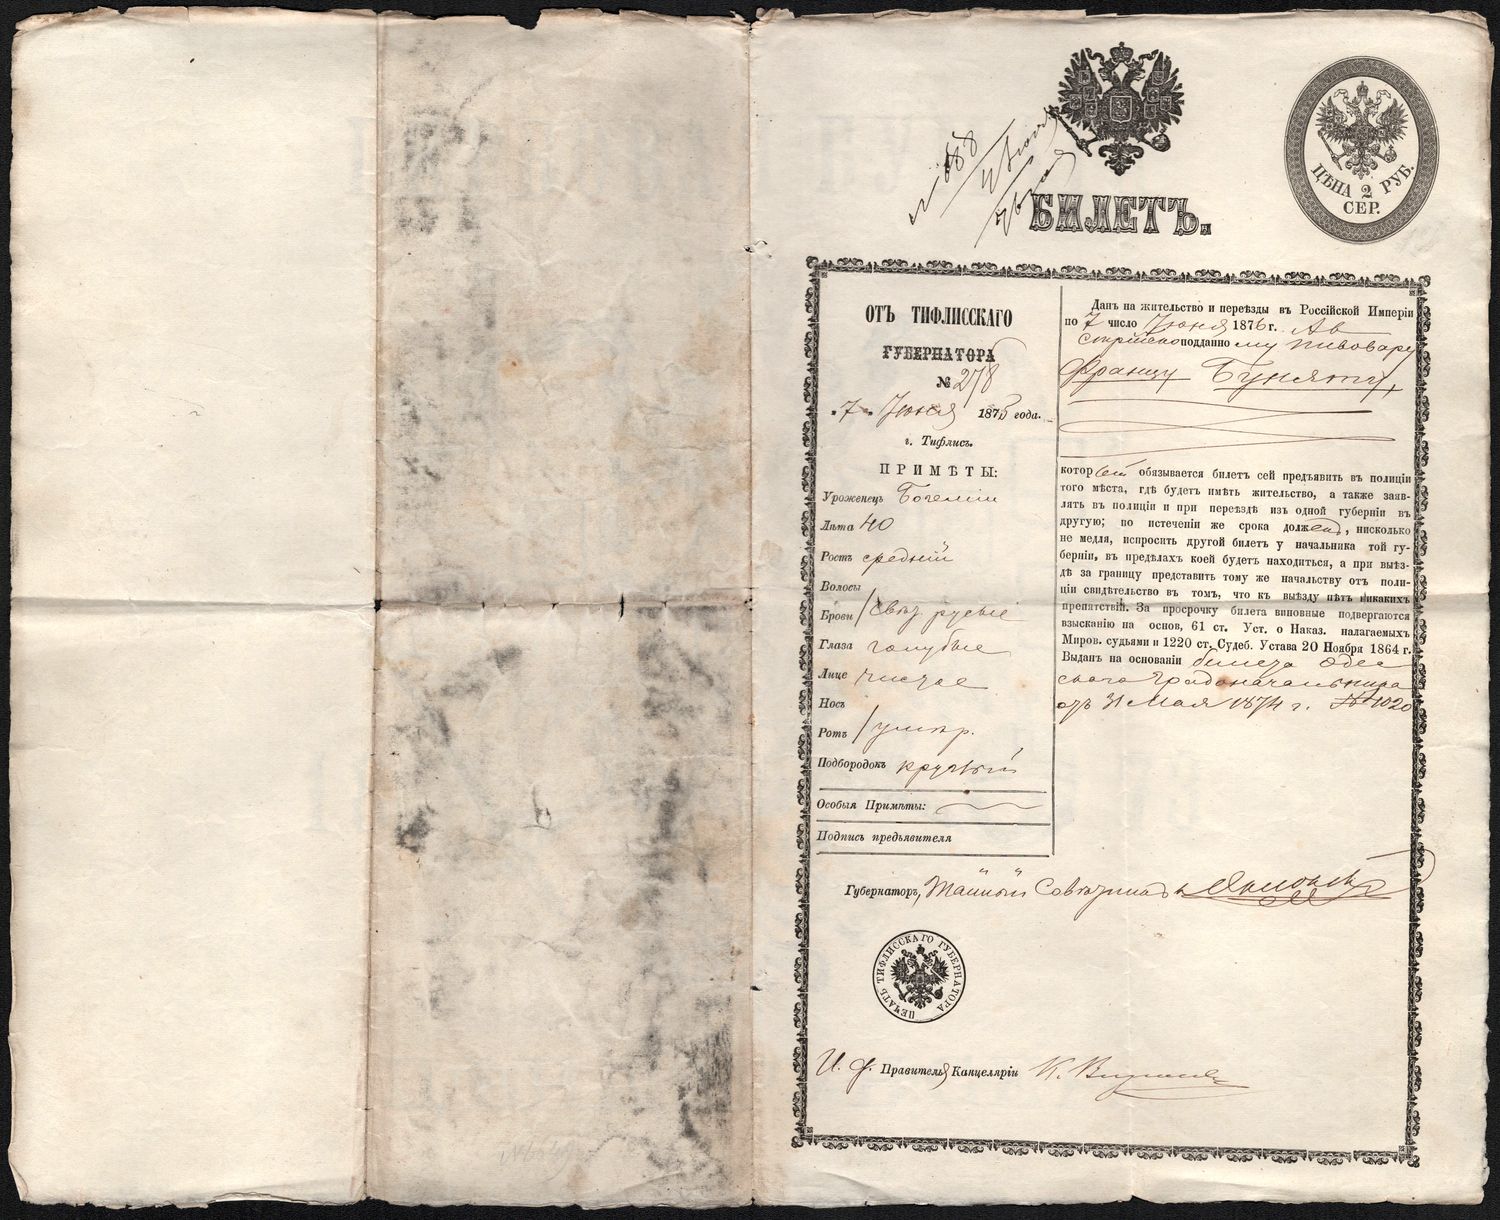 № 688
ЦѢНА 2 РУБ.
СЕР.
БИЛЕТЪ.
ОТЪ ТИФЛИССКАГО
ГУБЕРНАТОРА
№ 278
"7" Июня 1875 года.
г. Тифлисъ.
ПРИМѢТЫ:
Уроженецъ Богеміи
Лѣта 40
Ростъ средній
Волосы
Брови свѣт русые
Глаза голубые
Лице чистое
Носъ
Ротъ умѣр.
Подбородокъ круглый
Особыя Примѣты:
Подпись предъявителя
Данъ на жительство и переѣзды въ Россійской Имперіи
по 7 число Июня 1876 г. Ав
стрійско подданно му пивовару
Францу
котор ый обязывается билетъ сей предъявить въ полиціи
того мѣста, гдѣ будетъ имѣть жительство, а также заяв-
лять въ полиціи и при переѣздѣ изъ одной губерніи въ
другую; по истеченіи же срока долж енъ, нисколько
не медля, испросить другой билетъ у начальника той гу-
берніи, въ предѣлахъ коей будетъ находиться, а при выѣз-
дѣ за границу представить тому же начальству отъ поли-
ціи свидѣтельство въ томъ, что къ выѣзду нѣтъ никакихъ
препятствій. За просрочку билета виновные подвергаются
взысканію на основ. 61 ст. Уст. о Наказ. налагаемыхъ
Миров. судьями и 1220 ст. Судеб. Устава 20 Ноября 1864 г.
Выданъ на основаніи билета Одес
скаго Градоначальника
отъ 31 Мая 1874 г. № 1020
Губернаторъ, Тайный Совѣтникъ
ПЕЧАТЬ ТИФЛИССКАГО ГУБЕРНАТОРА
И. ф. Правителя Канцеляріи К.